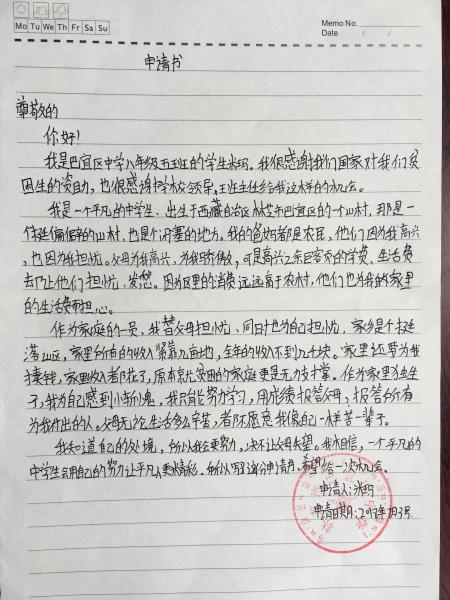 Mo Tu We Th Fr Sa Su
Memo No.
Date / /
申请书
尊敬的
你好！
我是巴宜区中学八年级五班的学生米玛。我很感谢我们国家对我们贫
困生的资助，也很感谢学校领导，班主任给我这样的机会。
我是一个平凡的中学生，出生于西藏自治区林芝市巴宜区的一个山村，那是一
个挺偏僻的山村，也是个闭塞的地方。我的爸妈都是农民，他们因为我高兴，
也因为我担忧。父母为我高兴，为我骄傲，可是高兴之余巨额的学费、生活费
却让他们担忧、发愁。因为区里的消费远远高于农村，他们也为我的家里
的生活费而担心。
作为家庭的一员，我替父母担忧，同时也为自己担忧，家乡是个挺
落山区，家里所有的收入紧靠几亩地，全年的收入不到几千块。家里还要为我
凑钱，家里收入都花了，原本就贫困的家庭更是无力支撑。作为家里独生
子，我为自己感到小惭愧，我只能努力学习，用成绩报答父母，报答所有
为我付出的人。父母无论生活多么辛苦，都不愿意我像自己一样苦一辈子。
我知道自己的处境，所以我会更努力，决不让父母失望。我相信，一个平凡的
中学生会用自己的努力让平凡人更精彩。所以写这份申请，希望给一次机会。
申请人：米玛
申请日期：2017年7月3号